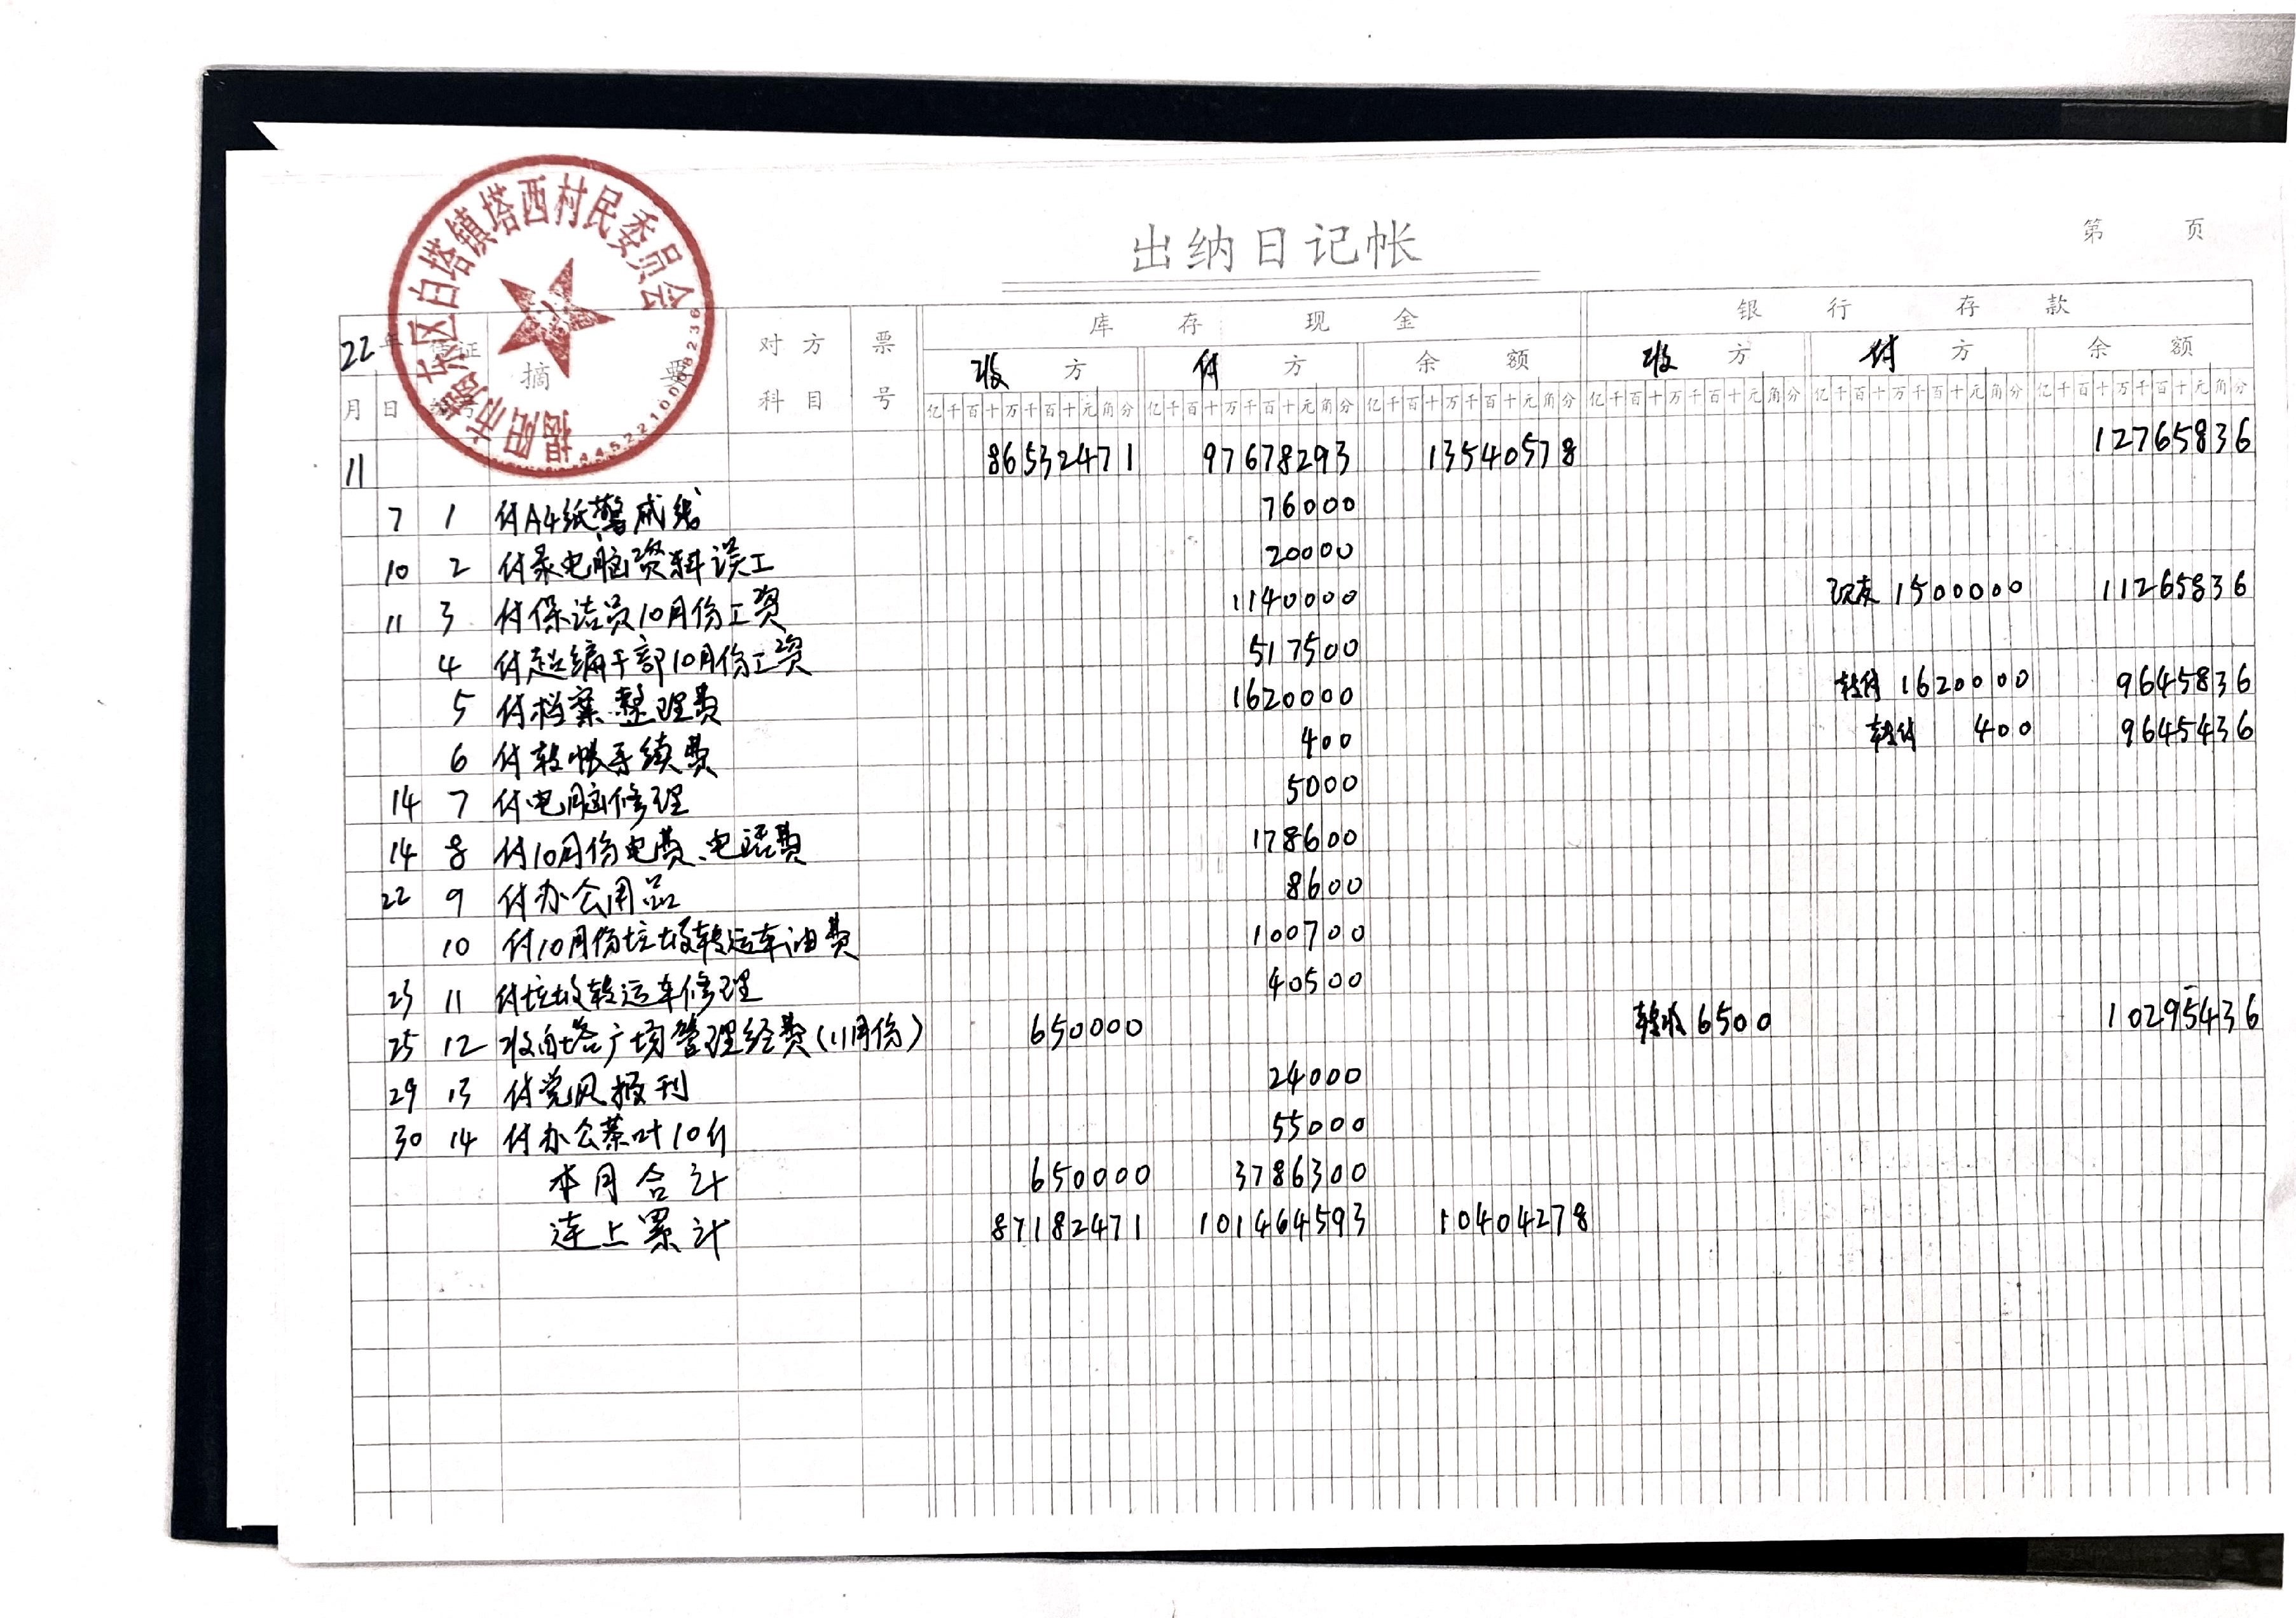 揭阳市揭东区白塔镇塔西村民委员会
4452210008236
出纳日记帐
第 页
22年 凭证 摘要 对方 票 库存现金 银行存款
收方 付方 余额 收方 付方 余额
月 日 编号 科目 号 亿千百十万千百十元角分 亿千百十万千百十元角分 亿千百十万千百十元角分 亿千百十万千百十元角分 亿千百十万千百十元角分 亿千百十万千百十元角分
11 86532471 97678293 13540578 12765836
7 1 付A4纸警戒线 76000
10 2 付录电脑资料误工 20000
11 3 付保洁员10月份工资 1140000 现支 1500000 11265836
4 付超编干部10月份工资 517500
5 付档案整理费 1620000 转付 1620000 9645836
6 付转帐手续费 400 转付 400 9645436
14 7 付电脑修理 5000
14 8 付10月份电费、电话费 178600
22 9 付办公用品 8600
10 付10月份垃圾转运车油费 100700
23 11 付垃圾转运车修理 40500
25 12 收白塔广场管理经费(11月份) 650000 转收 6500 10295436
29 13 付党风报刊 24000
30 14 付办公茶叶10斤 55000
本月合计 650000 3786300
连上累计 87182471 101464593 10404278